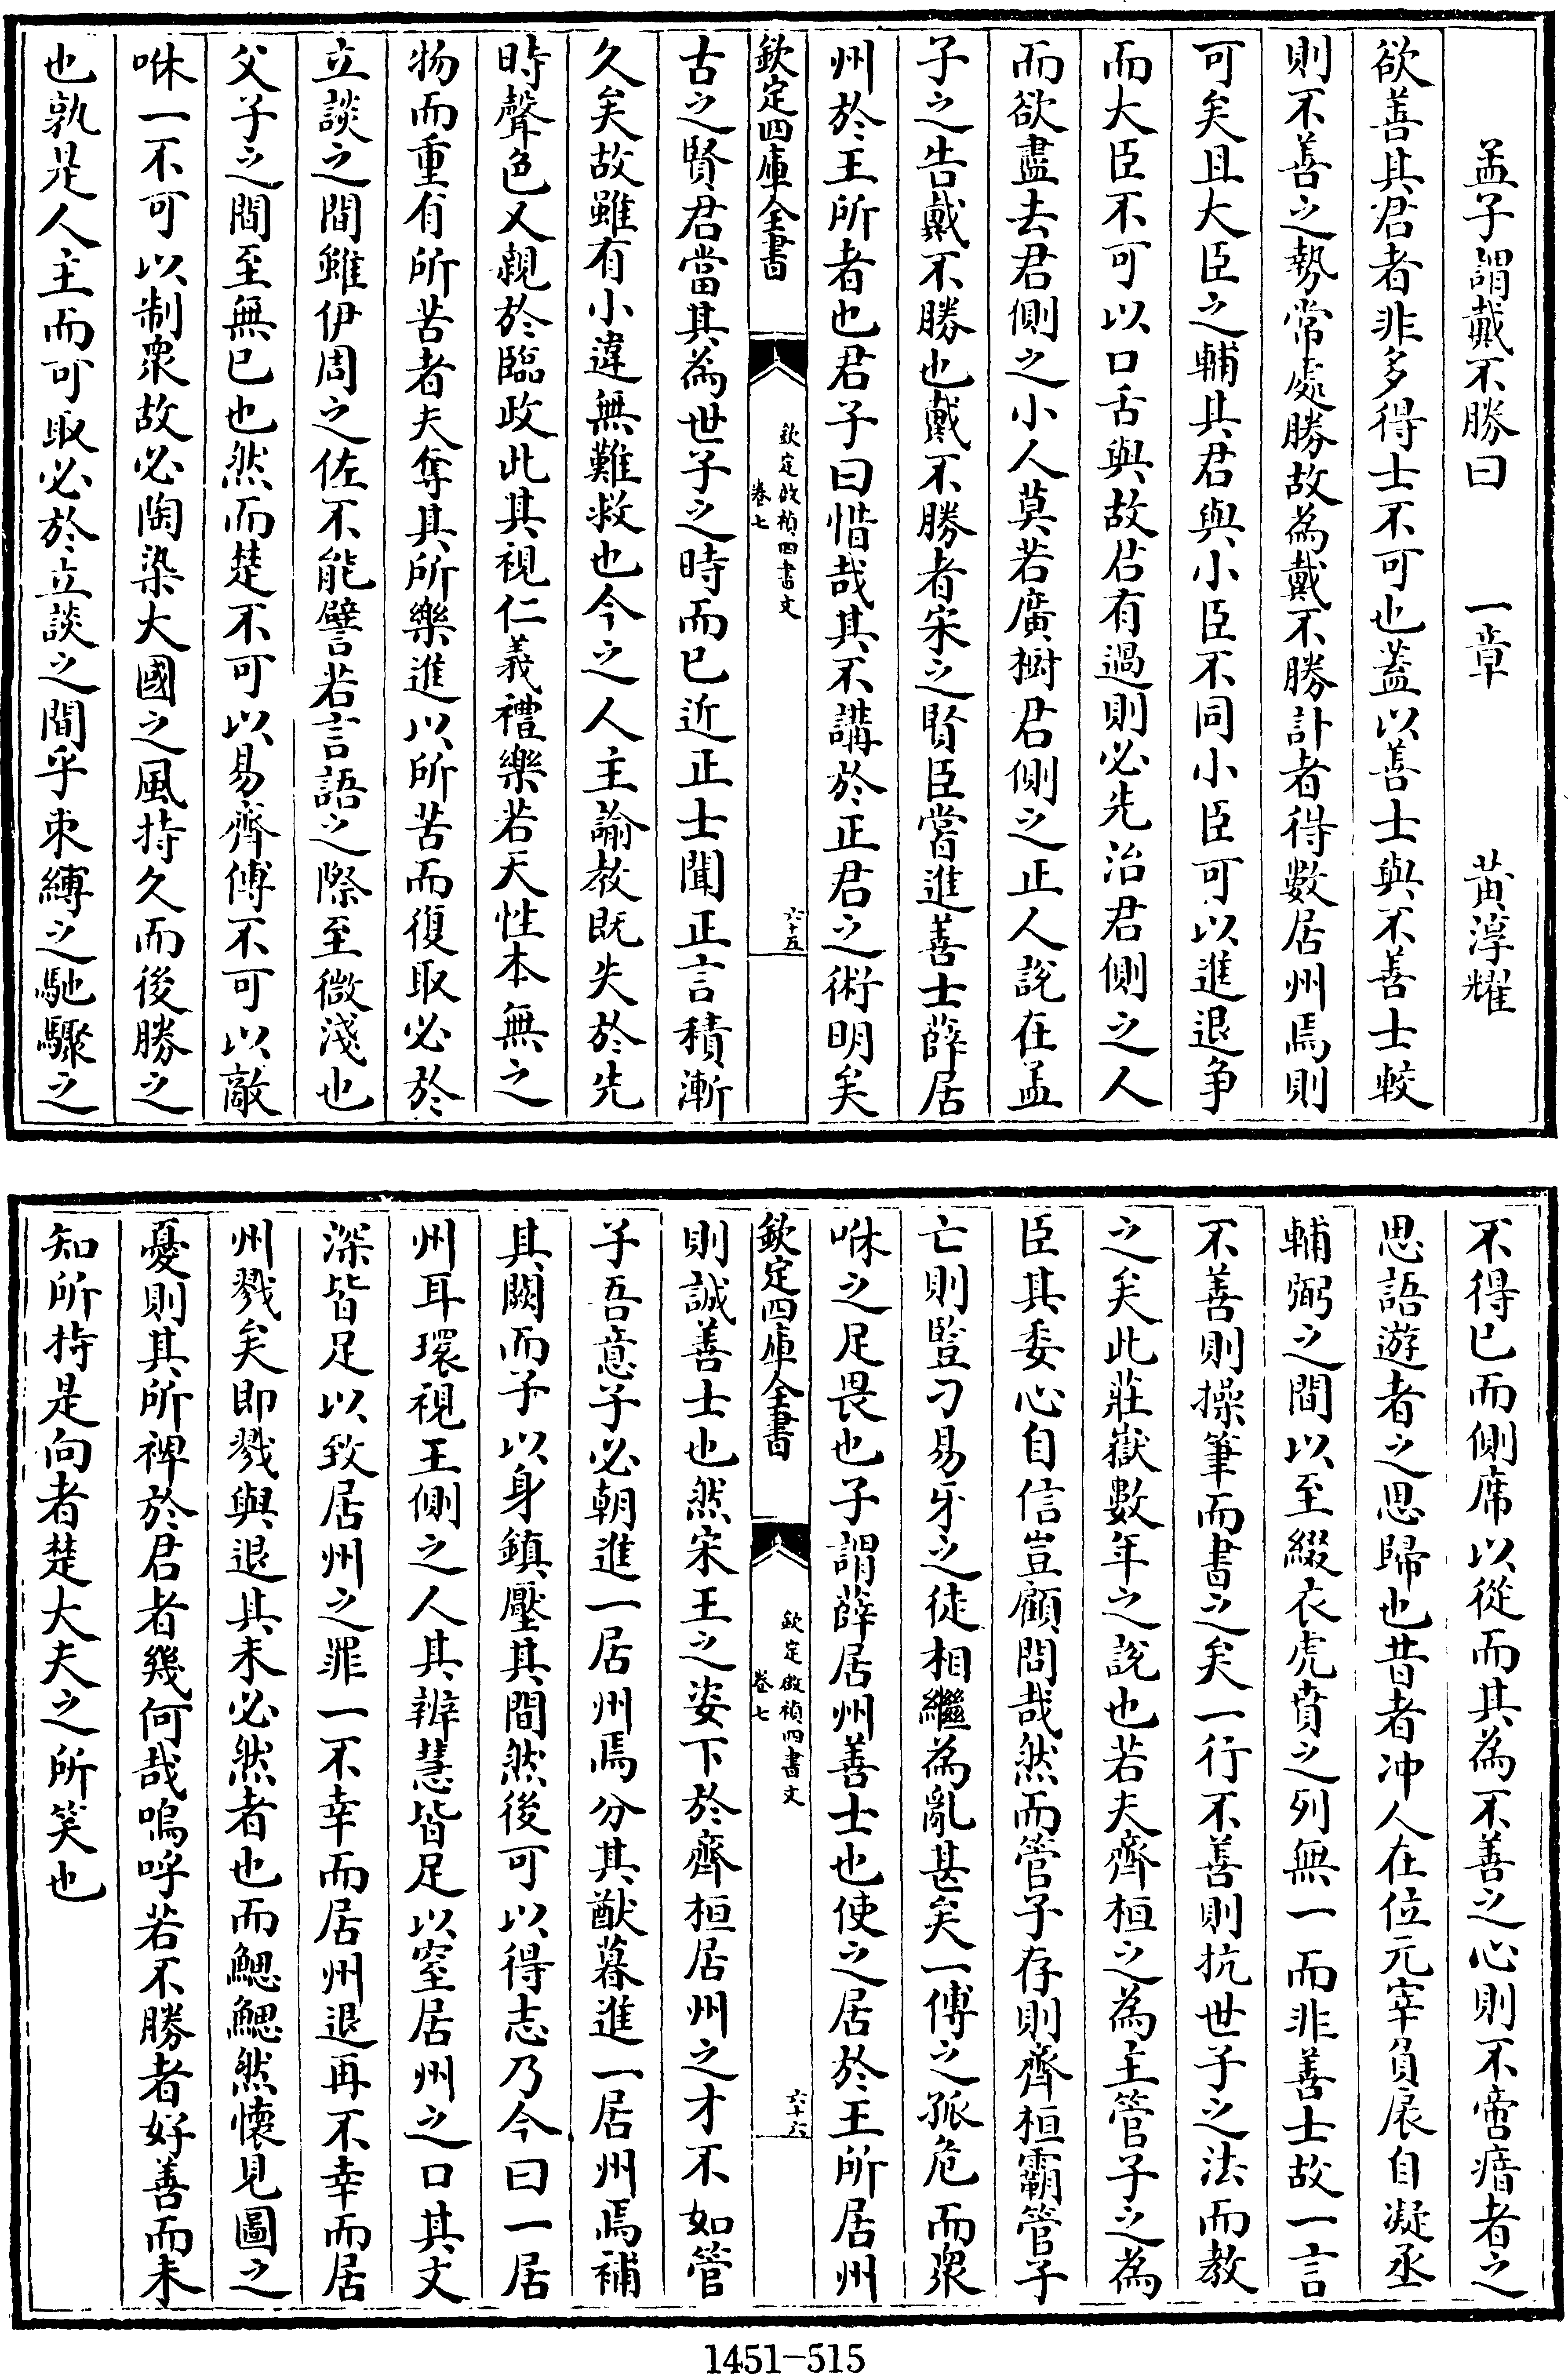 孟子謂戴不勝曰　一章　黄淳耀
欲善其君者非多得士不可也蓋以善士與不善士較
則不善之勢常處勝故為戴不勝計者得數居州焉則
可矣且大臣之輔其君與小臣不同小臣可以進退争
而大臣不可以口舌與故君有過則必先治君側之人
而欲盡去君側之小人莫若廣樹君側之正人說在孟
子之告戴不勝也戴不勝者宋之賢臣嘗進善士薛居
州於王所者也君子曰惜哉其不講於正君之術明矣
欽定四庫全書
欽定啟禎四書文
卷七
六十五
古之賢君當其為世子之時而已近正士聞正言積漸
久矣故雖有小違無難救也今之人主諭教既失於先
時聲色又親於臨政此其視仁義禮樂若天性本無之
物而重有所苦者夫奪其所樂進以所苦而復取必於
立談之間雖伊周之佐不能譬若言語之際至微淺也
父子之間至無已也然而楚不可以易齊傅不可以敵
咻一不可以制衆故必陶染大國之風持久而後勝之
也孰是人主而可取必於立談之間乎束縛之馳驟之
不得已而側席以從而其為不善之心則不啻瘖者之
思語遊者之思歸也昔者冲人在位元宰負扆自凝丞
輔弼之間以至綴衣虎賁之列無一而非善士故一言
不善則操筆而書之矣一行不善則抗世子之法而教
之矣此莊嶽數年之說也若夫齊桓之為主管子之為
臣其委心自信豈顧問哉然而管子存則齊桓霸管子
亡則豎刁易牙之徒相繼為亂甚矣一傅之孤危而衆
咻之足畏也子謂薛居州善士也使之居於王所居州
欽定四庫全書
欽定啟禎四書文
卷七
六十六
則誠善士也然宋王之姿下於齊桓居州之才不如管
子吾意子必朝進一居州焉分其猷暮進一居州焉補
其闕而子以身鎮壓其間然後可以得志乃今曰一居
州耳環視王側之人其辨慧皆足以窒居州之口其文
深皆足以致居州之罪一不幸而居州退再不幸而居
州戮矣即戮與退其未必然者也而鰓鰓然懷見圖之
憂則其所裨於君者幾何哉嗚呼若不勝者好善而未
知所持是向者楚大夫之所笑也
1451-515